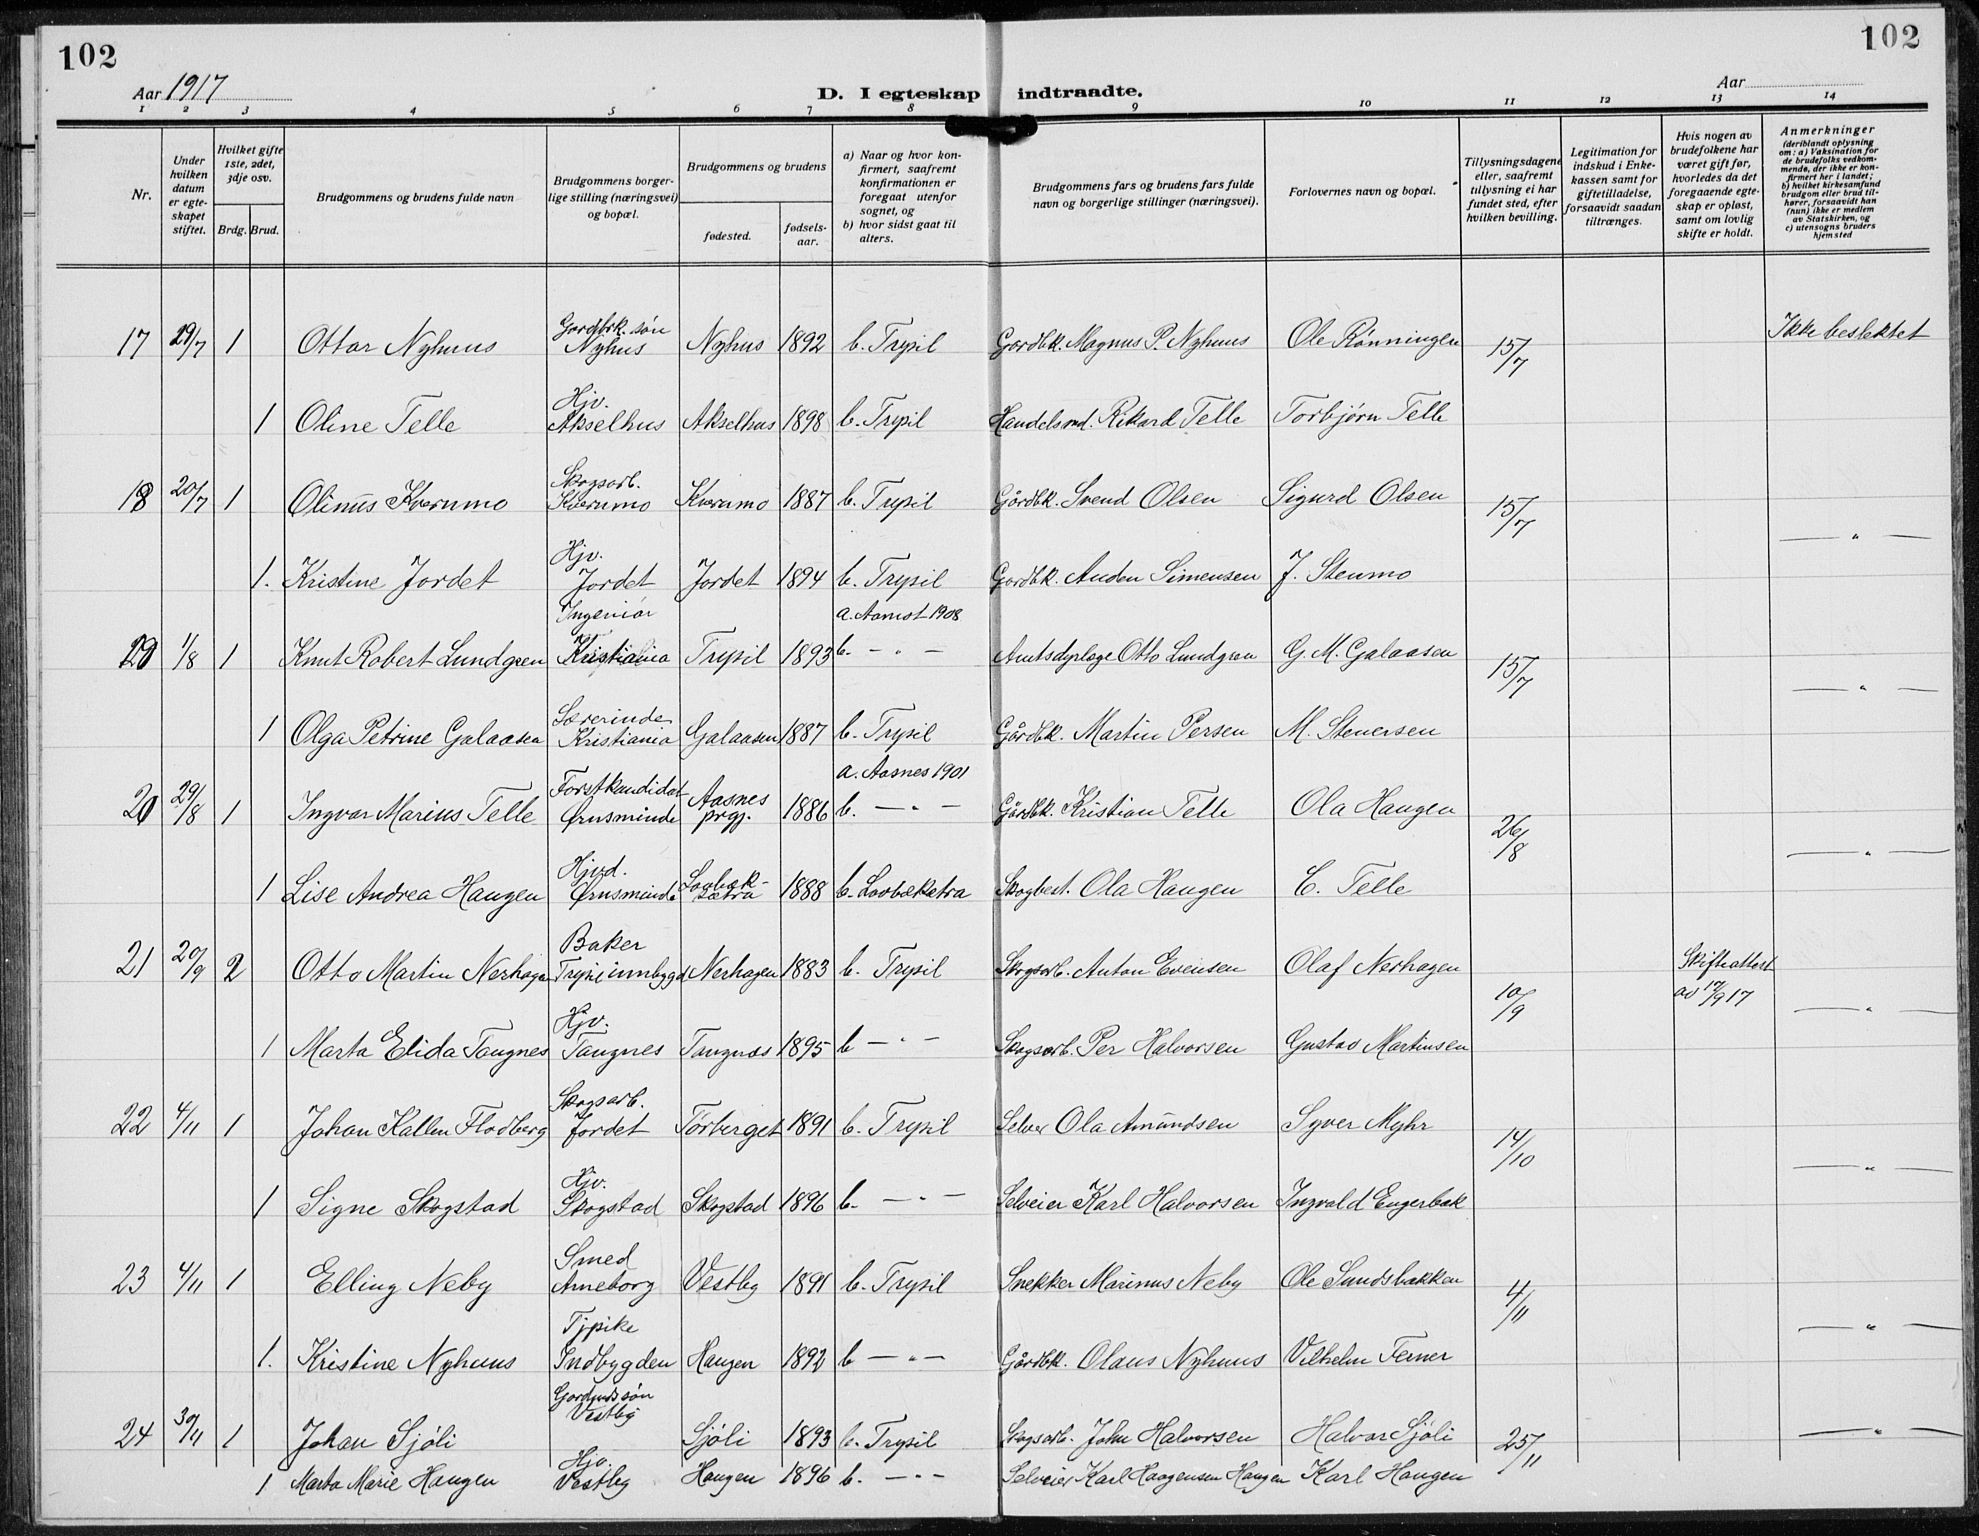 102
102
Aar 1917
D. I egteskap indtraadte.
Aar
1 2 3 4 5 6 7 8 9 10 11 12 13 14
Nr.
Under hvilken datum er egteskapet stiftet.
Hvilket gifte 1ste, 2det, 3dje osv.
Brdg. Brud.
Brudgommens og brudens fulde navn
Brudgommens borgerlige stilling (næringsvei) og bopæl.
Brudgommens og brudens
fødested.
fødselsaar.
a) Naar og hvor konfirmert, saafremt konfirmationen er foregaat utenfor sognet, og
b) hvor sidst gaat til alters.
Brudgommens fars og brudens fars fulde navn og borgerlige stillinger (næringsvei).
Forlovernes navn og bopæl.
Tillysningsdagene eller, saafremt tillysning ei har fundet sted, efter hvilken bevilling.
Legitimation for indskud i Enkekassen samt for giftetilladelse, forsaavidt saadan tiltrænges.
Hvis nogen av brudefolkene har været gift før, hvorledes da det foregaaende egteskap er opløst, samt om lovlig skifte er holdt.
Anmerkninger (deriblandt oplysning om: a) Vaksination for de brudefolks vedkommende, der ikke er konfirmert her i landet; b) hvilket kirkesamfund brudgom eller brud tilhører, forsaavidt han (hun) ikke er medlem av Statskirken, og c) utensogns bruders hjemsted
17 29/7 1 Ottar Nyhuus Gordbrk. søn Nyhus Nyhus 1892 b. Trysil Gordbk. Magnus P. Nyhuus Ole Rønningen 15/7 Ikke beslektet
1 Oline Telle Hjv. Akselhus Akselhus 1898 b. Trysil Handelsmd. Rikard Telle Torbjørn Telle
18 20/7 1 Olinus Kvernmo Skogsarb. Kvernmo Kvernmo 1887 b. Trysil Gårdbk. Svend Olsen Sigurd Olsen 15/7 — " —
1. Kristine Jordet Hjv. Jordet Jordet 1894 b. Trysil Gordbk. Auden Simensen J. Stenmo
1/8 1 Knut Robert Lundgren Ingeniør Kristiania Trysil 1893 a. Aamot 1908 b. — " — Amtsdyrlæge Otto Lundgren G. M. Galaasen 15/7 — " —
1 Olga Petrine Galaasen Lærerinde Kristiania Galaasen 1887 b. Trysil Gårdbk. Martin Persen M. Stenersen
20 29/8 1 Ingvar Marius Telle Forstkandidat Ørnsminde Aasnes prgj. 1886 a. Aasnes 1901 b. — " — Gårdbk. Kristian Telle Ola Haugen 26/8 — " —
1 Lise Andrea Haugen Hjvd. Ørnsminde Lovbæksætra 1888 b. Lovbæketra Skogbest. Ola Haugen C. Telle
21 20/9 2 Otto Martin Nerhagen Baker Trysil innbygd Nerhagen 1883 b. Trysil Skogsarb. Anton Evensen Olaf Nerhagen 10/9 Skifteattest av 17/9 17 — " —
1 Marta Elida Tangnes Hjv. Tangnes Tangnæs 1895 b — " — Skogsarb. Per Halvorsen Gustav Martinsen
22 4/11 1 Johan Kallen Flodberg Skogsarb. Jordet Törberget 1891 b. Trysil Selvei Ola Amundsen Syver Myhr 14/10 — " —
1 Signe Skogstad Hjv. Skogstad Skogstad 1896 b. — " — Selveier Karl Halvorsen Ingvald Engerbak
23 4/11 1 Elling Neby Smed Arneborg Vestby 1891 b. Trysil Snekker Marinus Neby Ole Sundsbakken 4/11 — " —
1. Kristine Nyhuus Tjpike Indbygden Haugen 1892 b — " — Gårdbk. Olaus Nyhuus Vilhelm Ferner
24 30/11 1 Johan Sjøli Vestby Sjøli 1893 b. Trysil Skogsarb. John Halvorsen Halvor Sjøli 25/11 — " —
1 Marta Marie Haugen Hjv. Vestby Haugen 1896 b. — " — Selveier Karl Haagensen Haugen Karl Haugen